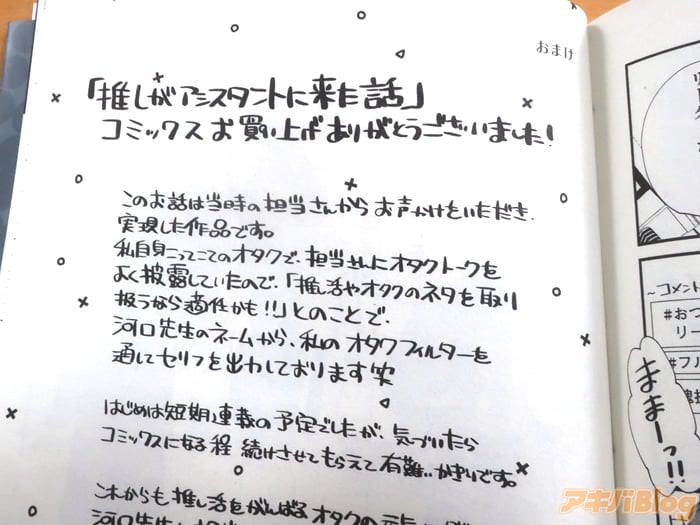 おまけ
「推しがアシスタントに来た話」
コミックスお買い上げありがとうございました!
このお話は当時の担当さんからお声かけをいただき、
実現した作品です。
私自身こってこてのオタクで、担当さんにオタクトークを
よく披露していたので、「推し活やオタクのネタを取り
扱うなら適任かも!!」とのことで、
河口先生のネームから、私のオタクフィルターを
通してセリフを出力しております笑
はじめは短期連載の予定でしたが、気づいたら
コミックスになる程続けさせてもらえて有難いかぎりです。
これからも推し活をがんばるオタクの元気
河口先生
~コメント
#おつ
リー
#フル
ままーっ!!
アキバBlog